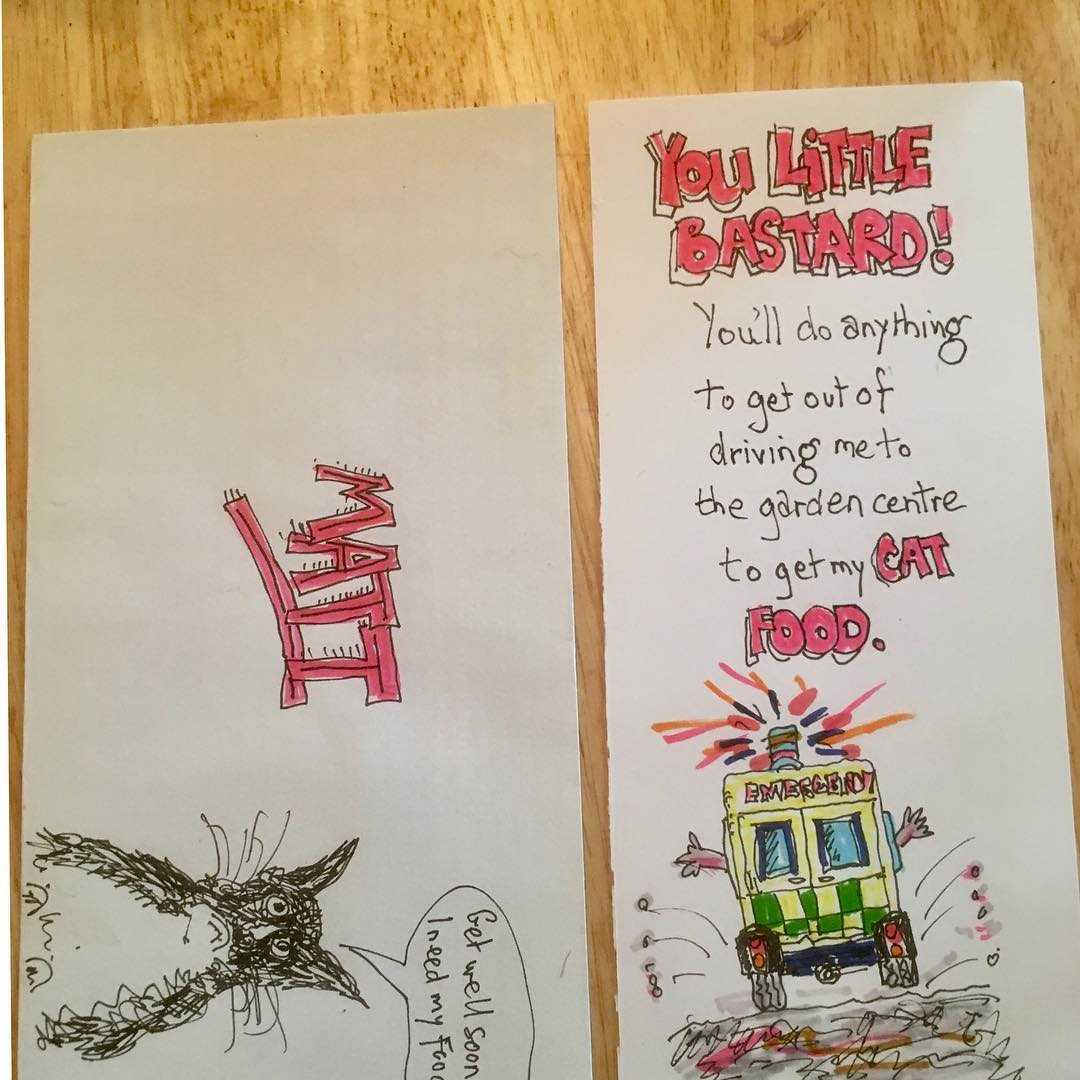 MATT
Get well soon
I need my Food
YOU LiTTLE
BASTARD!
You'll do anything
to get out of
driving me to
the garden centre
to get my CAT
FOOD.
EMERGENCY